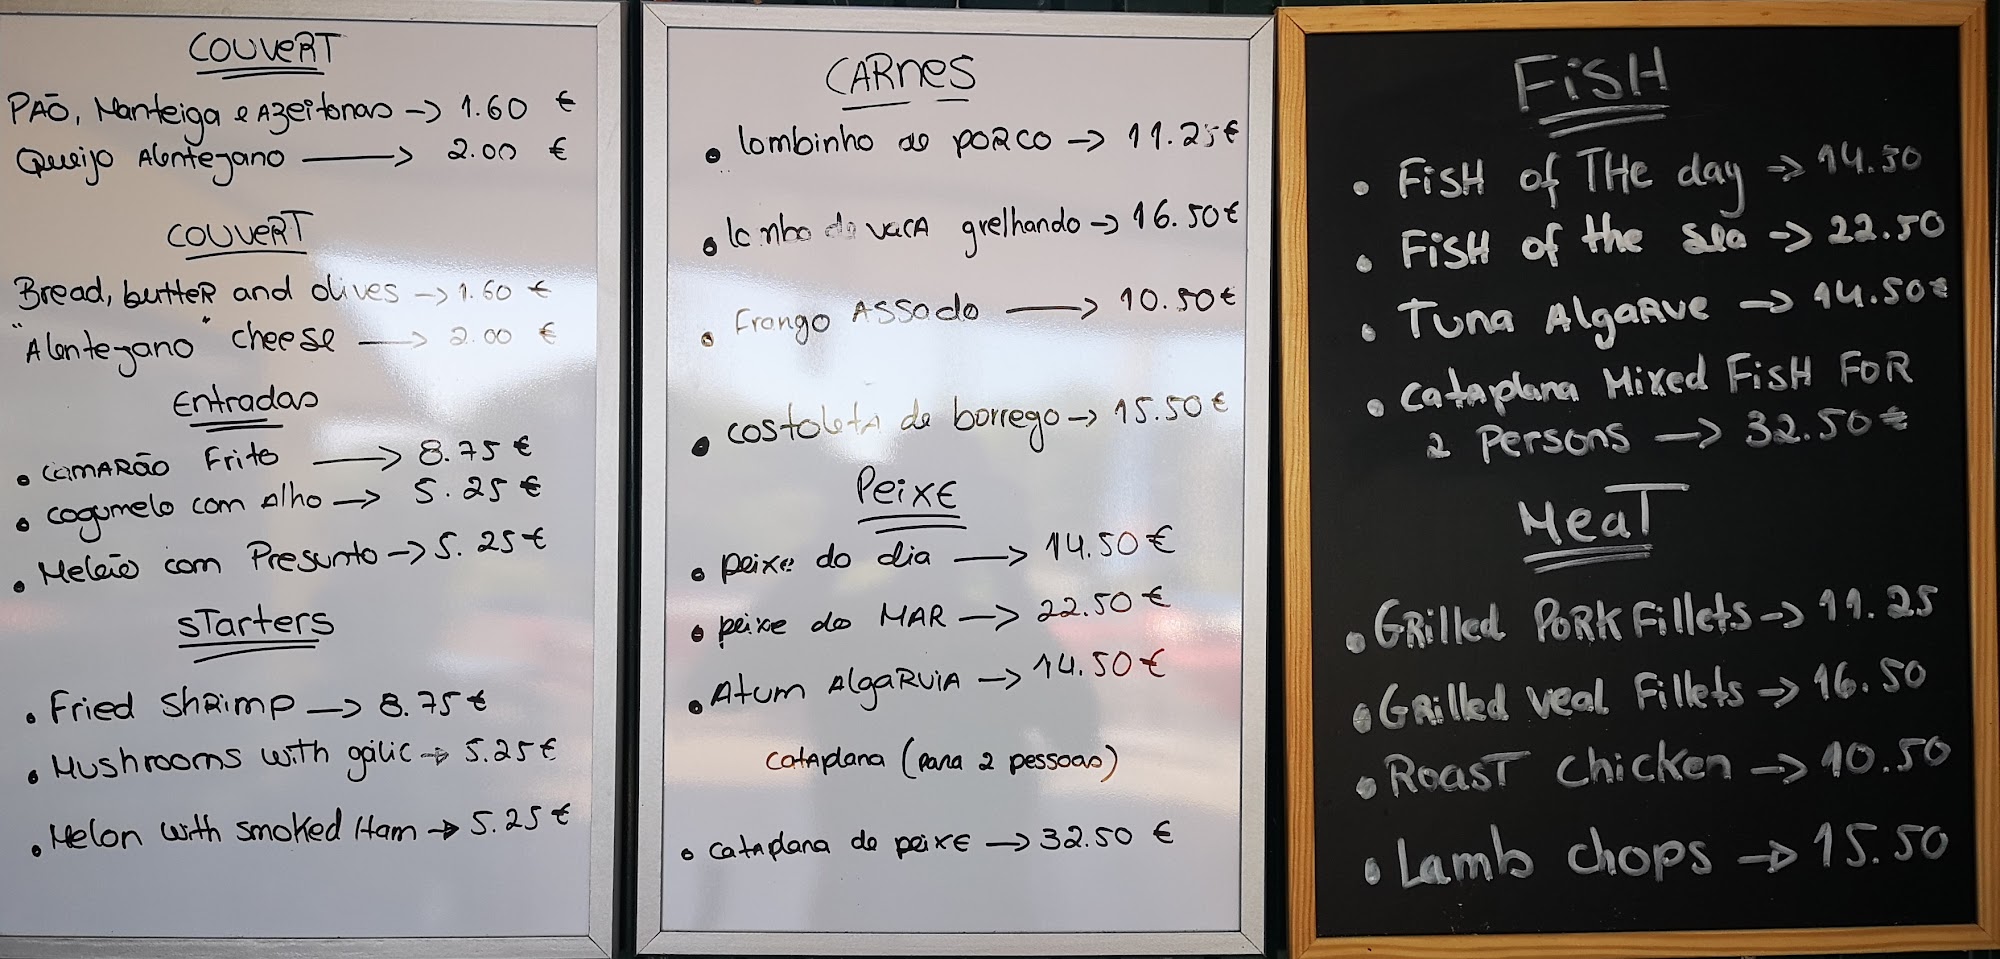 COUVERT
PÃO, Manteiga e AZeitonas -> 1.60 €
Queijo Alentejano -> 2.00 €
COUVERT
Bread, butteR and olives -> 1.60 €
"Alentejano" cheese -> 2.00 €
Entradas
• CAMARÃO Frito -> 8.75 €
• cogumelo com Alho -> 5.25 €
• Melão com Presunto -> 5.25 €
STarters
• Fried ShRimp -> 8.75 €
• Mushrooms with gálic -> 5.25 €
• Melon with smoked Ham -> 5.25 €
CARnes
• lombinho de PORCO -> 11.25 €
• lombo de VACA grelhando -> 16.50 €
• Frango ASSado -> 10.50 €
• costoleta de borrego -> 15.50 €
PeixE
• peixe do dia -> 14.50 €
• peixe do MAR -> 22.50 €
• Atum AlgaRVIA -> 14.50 €
CatAplana (para 2 pessoas)
• catAplana de peixE -> 32.50 €
FiSH
• FiSH of THe day -> 14.50
• FiSH of the Sea -> 22.50
• Tuna AlgaRve -> 14.50 €
• CatAplana Mixed FiSH FoR
2 Persons -> 32.50 €
MeaT
• GRilled PoRK Fillets -> 11.25
• GRilled veal Fillets -> 16.50
• RoasT chicken -> 10.50
• Lamb chops -> 15.50